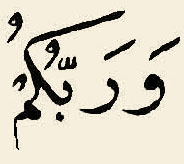 وَرَبُّكُمُ